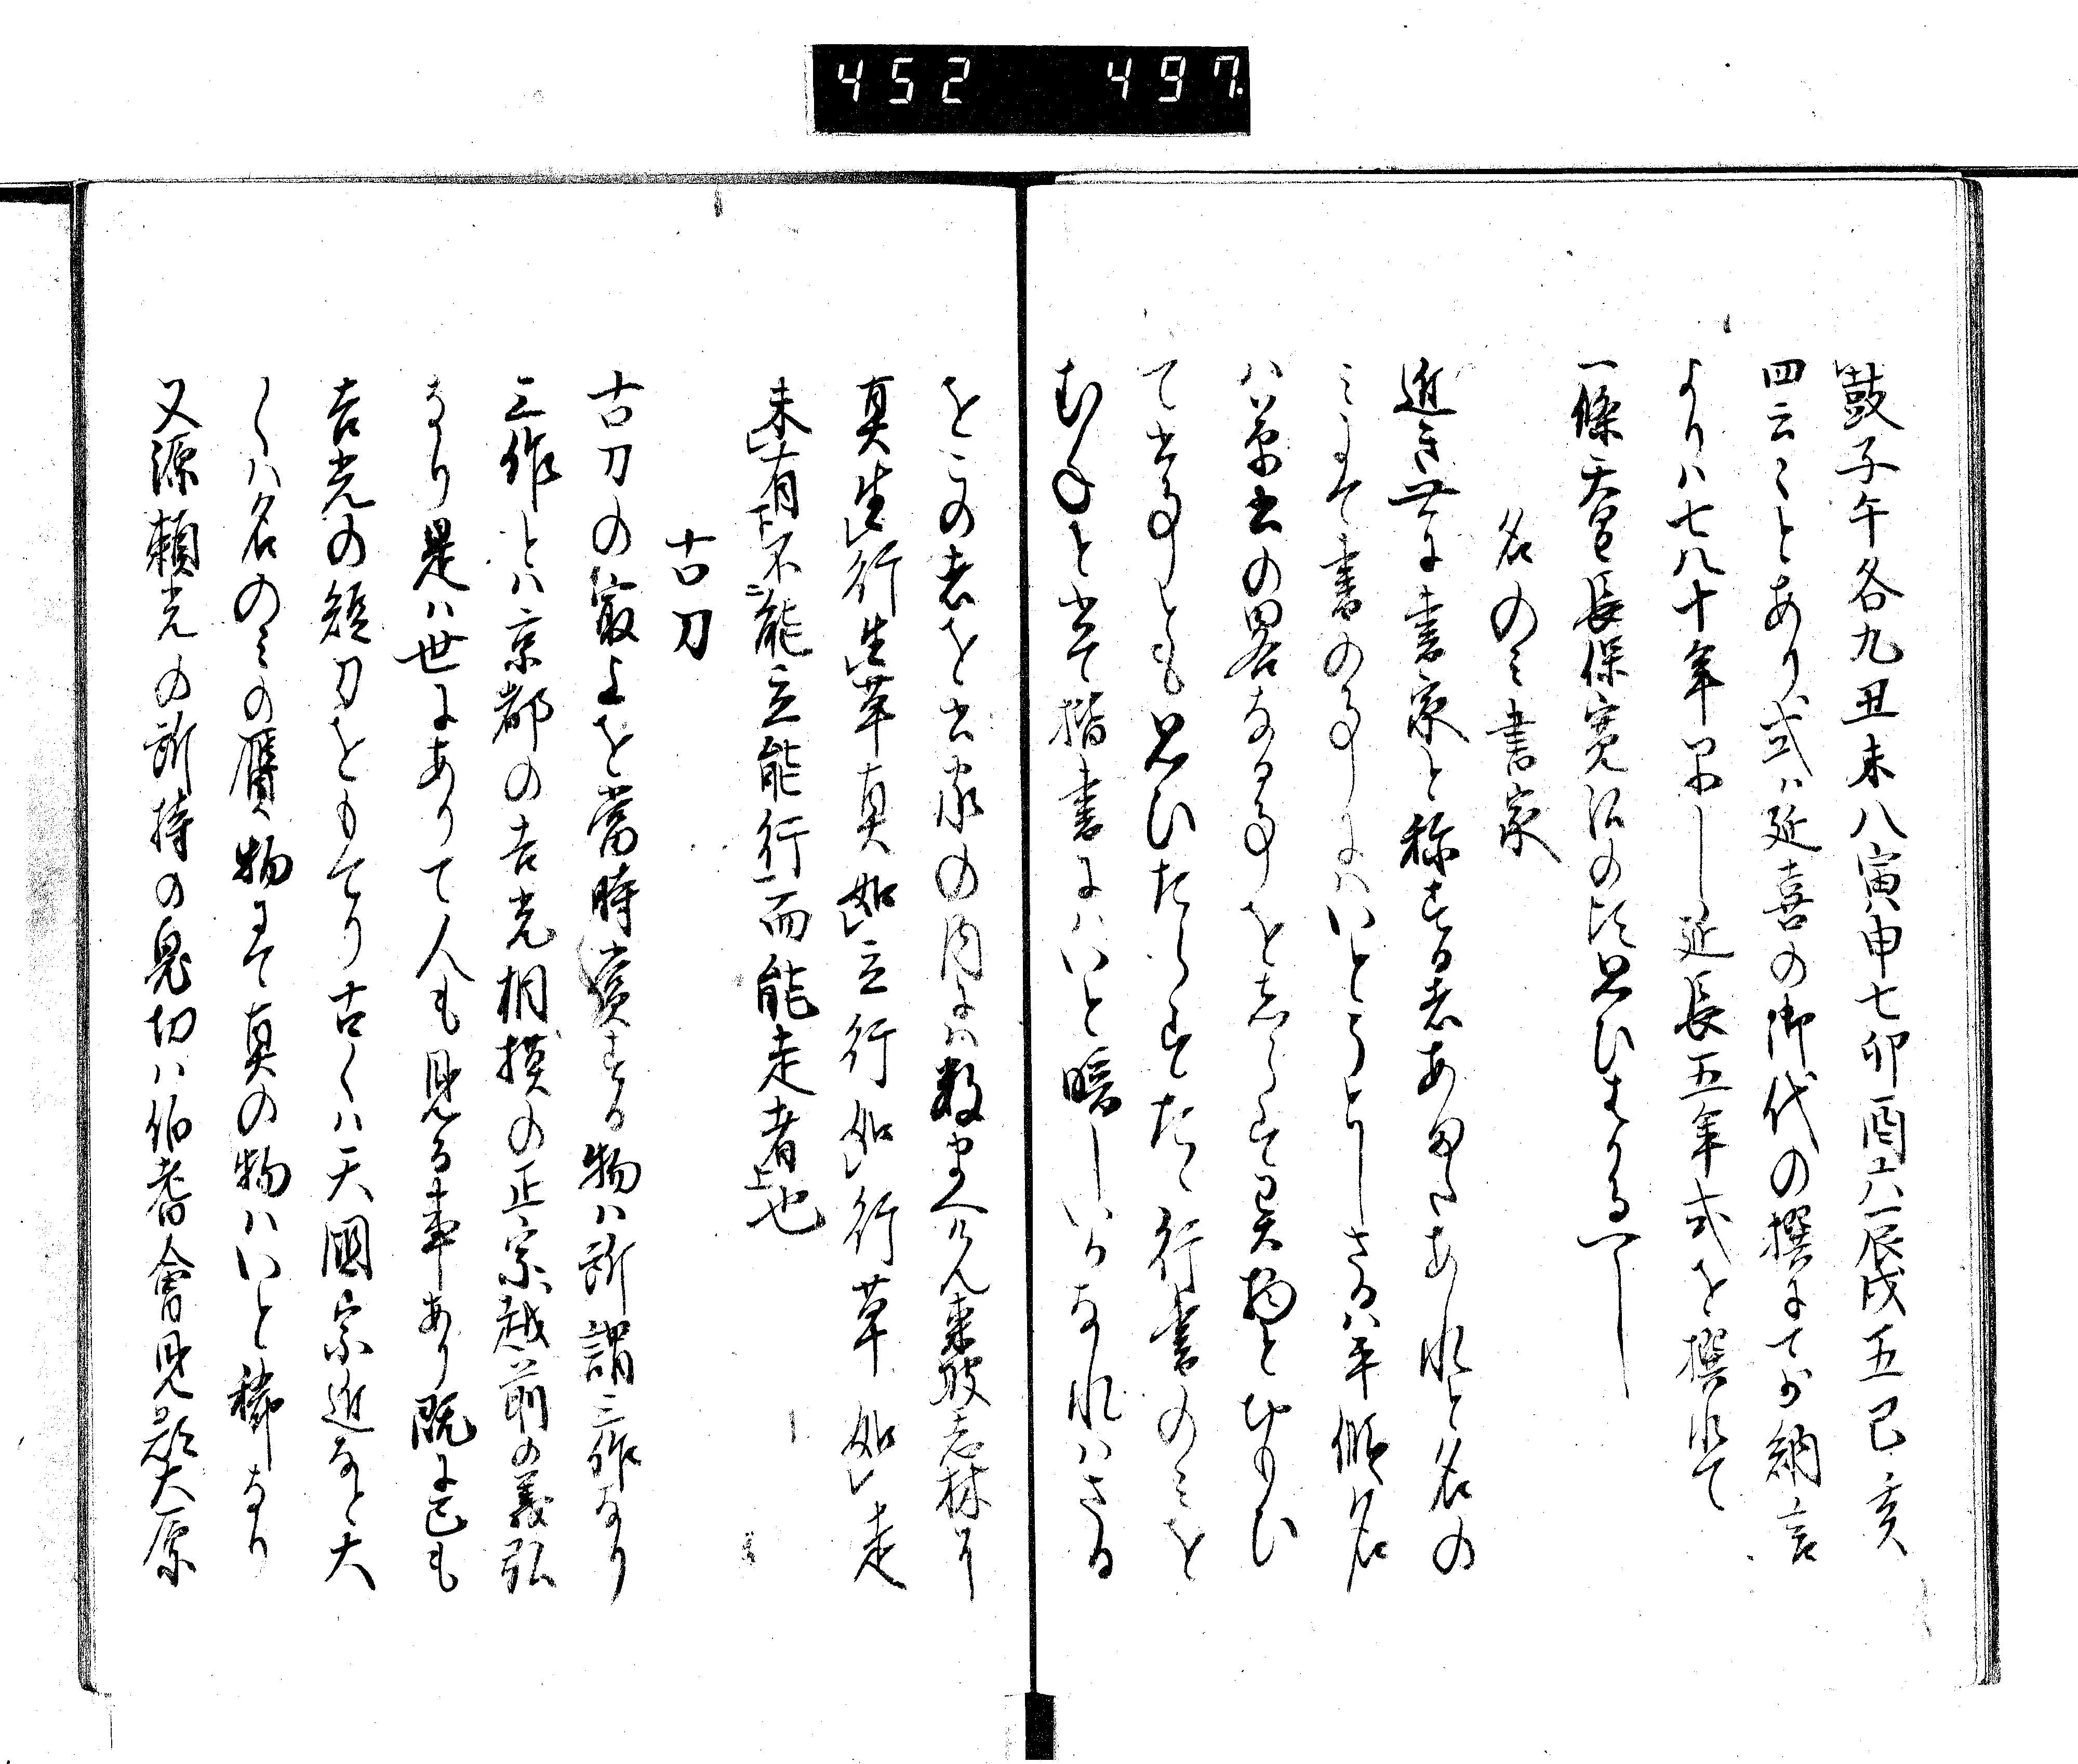 452 497.
鼓子午各九丑未八寅申七卯酉六辰戌五巳亥
四云々とあり式ハ延喜の御代の撰にて少納言
よりハ七八十年早し延長五年式を撰れて
一條天皇長保寛治の比思ひはかるへし
名のミ書家
近き世に書家と称する者あまたあれと名の
ミにて書の事にハいとうとしさるハ平假名
ハ草書の畧なる事をしらすして異物とひとひ
て書事とも思ひたらすたゝ行書のミを
むねと書て楷書にハいと暗しいかなれハさる
をこの者を書家の内にハ数まへけん東坡志林に
真生行生草真如立行如行草如走
未有不能立能行而能走者也
古刀
古刀の最上を當時賣する物ハ所謂三作なり
三作とハ京都の吉光相摸の正宗越前の義弘
なり是ハ世にありて人も見る事あり既に己も
吉光の短刀をもてり古くハ天國宗近なと大
くハ名のミの贋物にて真の物ハいと稀なり
又源頼光の所持の鬼切ハ伯耆會見郡大原